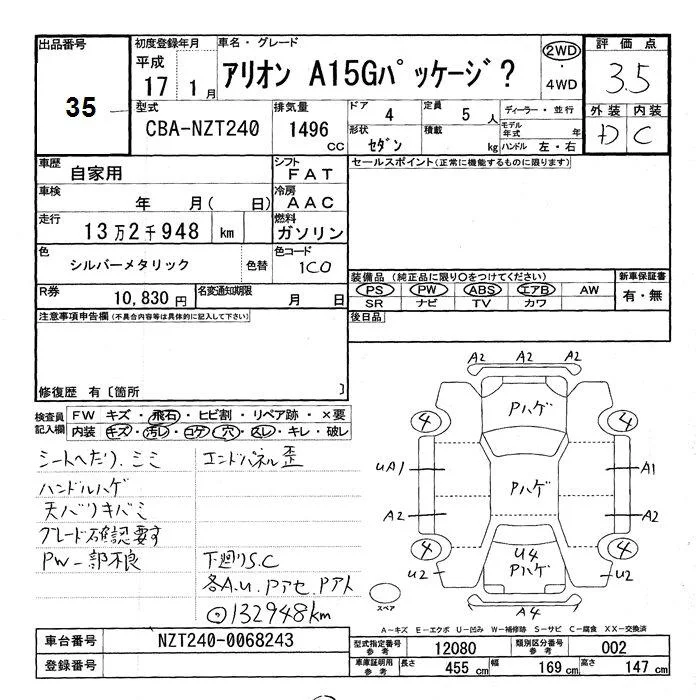 出品番号
35
初度登録年月
平成
17 1月
車名・グレード
アリオン A15Gパッケージ?
2WD
・
4WD
評価点
3.5
型式
CBA-NZT240
排気量
1496
CC
ドア
4
定員
5 人
ディーラー・並行
形状
セダン
積載
kg
モデル年式 年
ハンドル 左・右
外装 内装
D C
車歴
自家用
シフト
FAT
車検
年 月( 日)
冷房
AAC
走行
13万2千948 km
燃料
ガソリン
色
シルバーメタリック
色替
色コード
1C0
R券
10,830円
名変通知期限
月 日
セールスポイント(正常に機能するものに限ります)
装備品(純正品に限り○をつけてください)
PS PW ABS エアB AW
SR ナビ TV カワ
新車保証書
有・無
後日品
注意事項申告欄(不具合内容等は具体的に記入して下さい)
修復歴 有〔箇所 〕
検査員
記入欄
FW キズ・飛石・ヒビ割・リペア跡・×要
内装 キズ・汚レ・コゲ・穴・スレ・キレ・破レ
シートへたり、シミ
ハンドルハゲ
天バリキバミ
グレード確認要す
PW一部不良
エンドパネル歪
下廻りS.C
各A.U.Pアセ.Pアト
⊙132948km
A2 A2 A2
Pハゲ
4 4
UA1 A1
Pハゲ
A2 A2
4 4
U4
Pハゲ
U2 U2
A4
スペア
A－キズ E－エクボ U－凹み W－補修跡 S－サビ C－腐食 XX－交換済
車台番号
NZT240-0068243
登録番号
型式指定番号
参考
12080
類別区分番号
参考
002
車庫証明用
参考
長さ
455 cm
幅
169 cm
高さ
147 cm